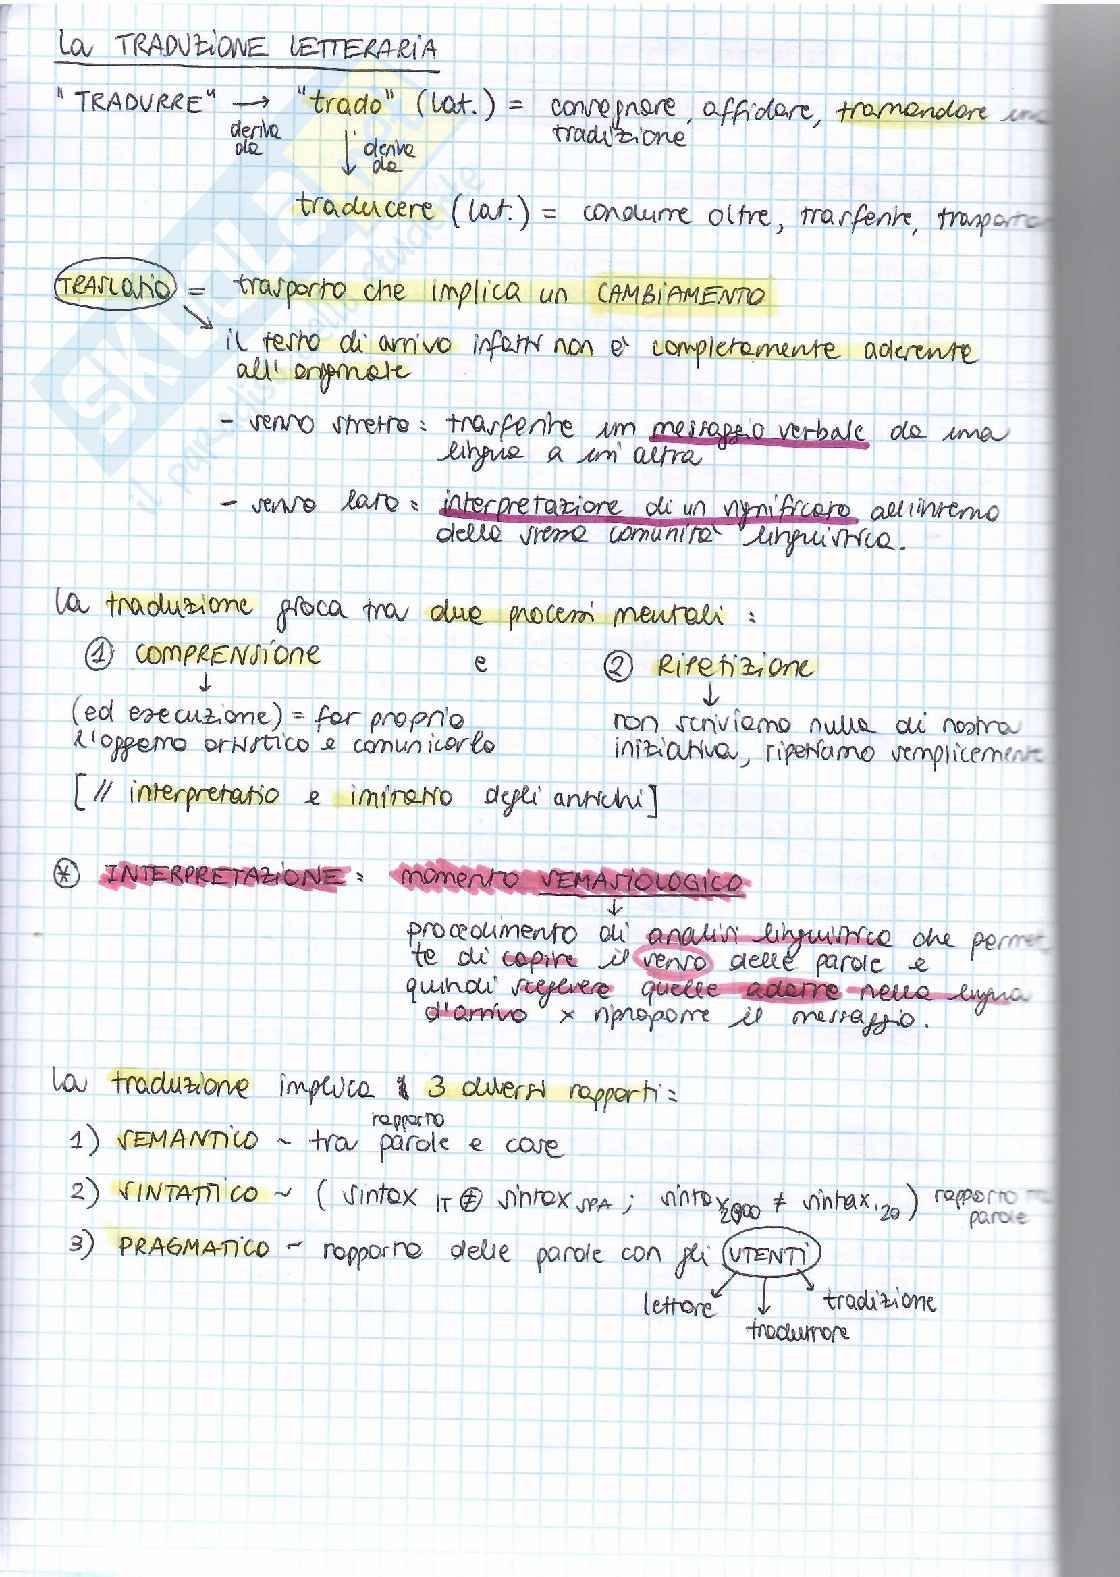 La TRADUZIONE LETTERARIA
"TRADURRE" → "trado" (lat.) = consegnare, affidare, tramandare una
deriva da
tradizione
deriva da
traducere (lat.) = condurre oltre, trasferire, trasportare
TRASLATIO = trasporto che implica un CAMBIAMENTO
il testo di arrivo infatti non è completamente aderente
all'originale
- senso stretto: trasferire un messaggio verbale da una
lingua a un'altra
- senso lato: interpretazione di un significato all'interno
della stessa comunità linguistica.
La traduzione gioca tra due processi mentali:
① COMPRENSIONE e ② RIPETIZIONE
(ed esecuzione) = far proprio non scriviamo nulla di nostra
l'oggetto artistico e comunicarlo iniziativa, ripetiamo semplicemente
[// interpretatio e imitatio degli antichi]
* INTERPRETAZIONE: momento SEMASIOLOGICO
procedimento di analisi linguistica che permet
te di capire il senso delle parole e
quindi scegliere quelle adatte nella lingua
d'arrivo x riproporre il messaggio.
La traduzione implica 3 diversi rapporti:
1) SEMANTICO ~ tra rapporto parole e cose
2) SINTATTICO ~ (sintax IT ≠ sintax SPA; sintax 2000 ≠ sintax '20) rapporto tra
parole
3) PRAGMATICO ~ rapporto delle parole con gli UTENTI
lettore tradizione
traduttore
SKUOLA.net
il paradiso dello studente